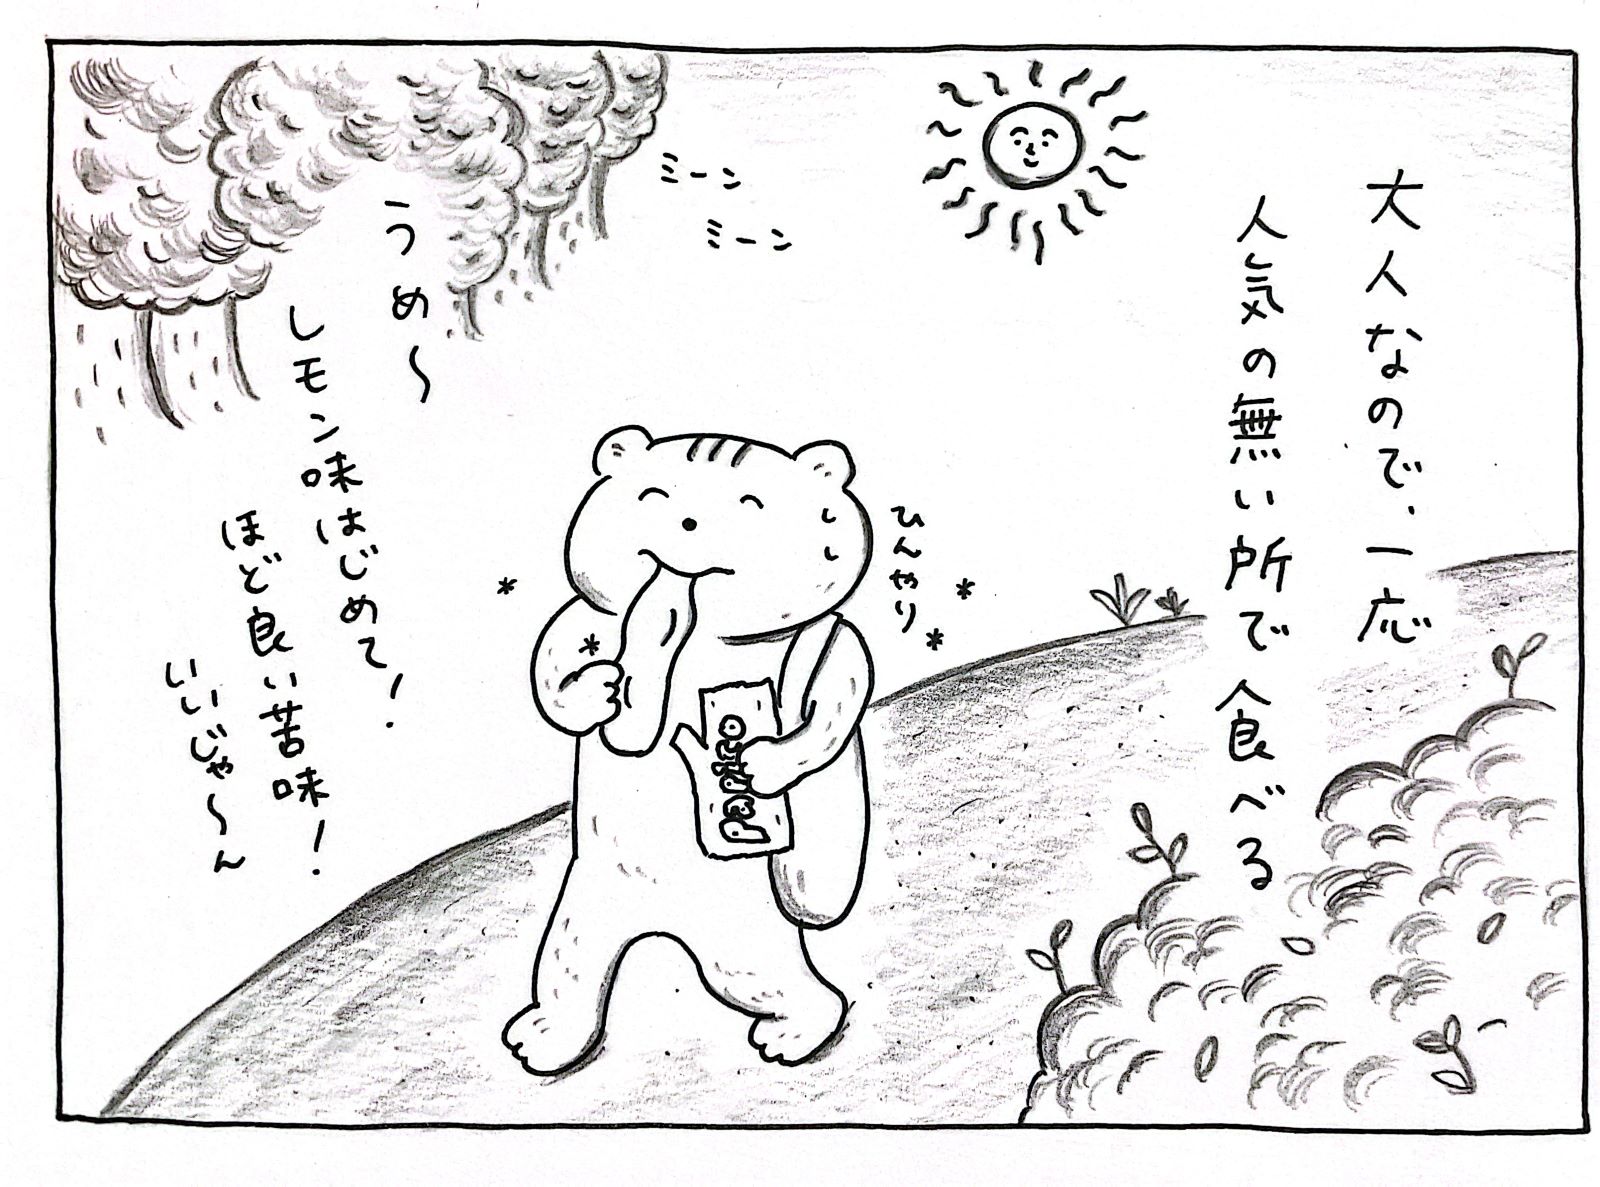 大人なので、一応
人気の無い所で食べる
ミーン
ミーン
ひんやり
PaPico
うめ〜
レモン味はじめて！
ほど良い苦味！
いいじゃ〜ん